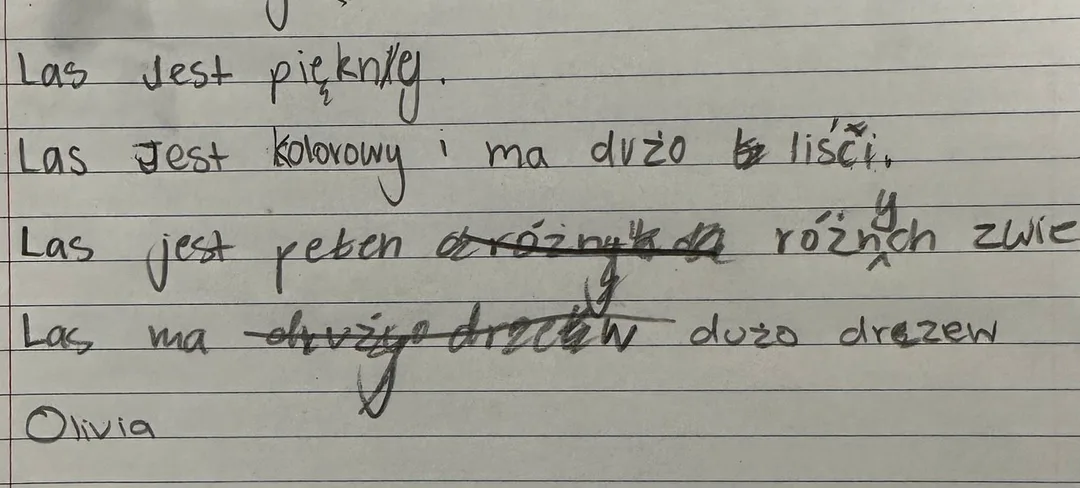 Las Jest piękny.
Las Jest kolorowy i ma dużo liści.
Las jest pełen różnych zwie
Las ma dużo drązew
Olivia